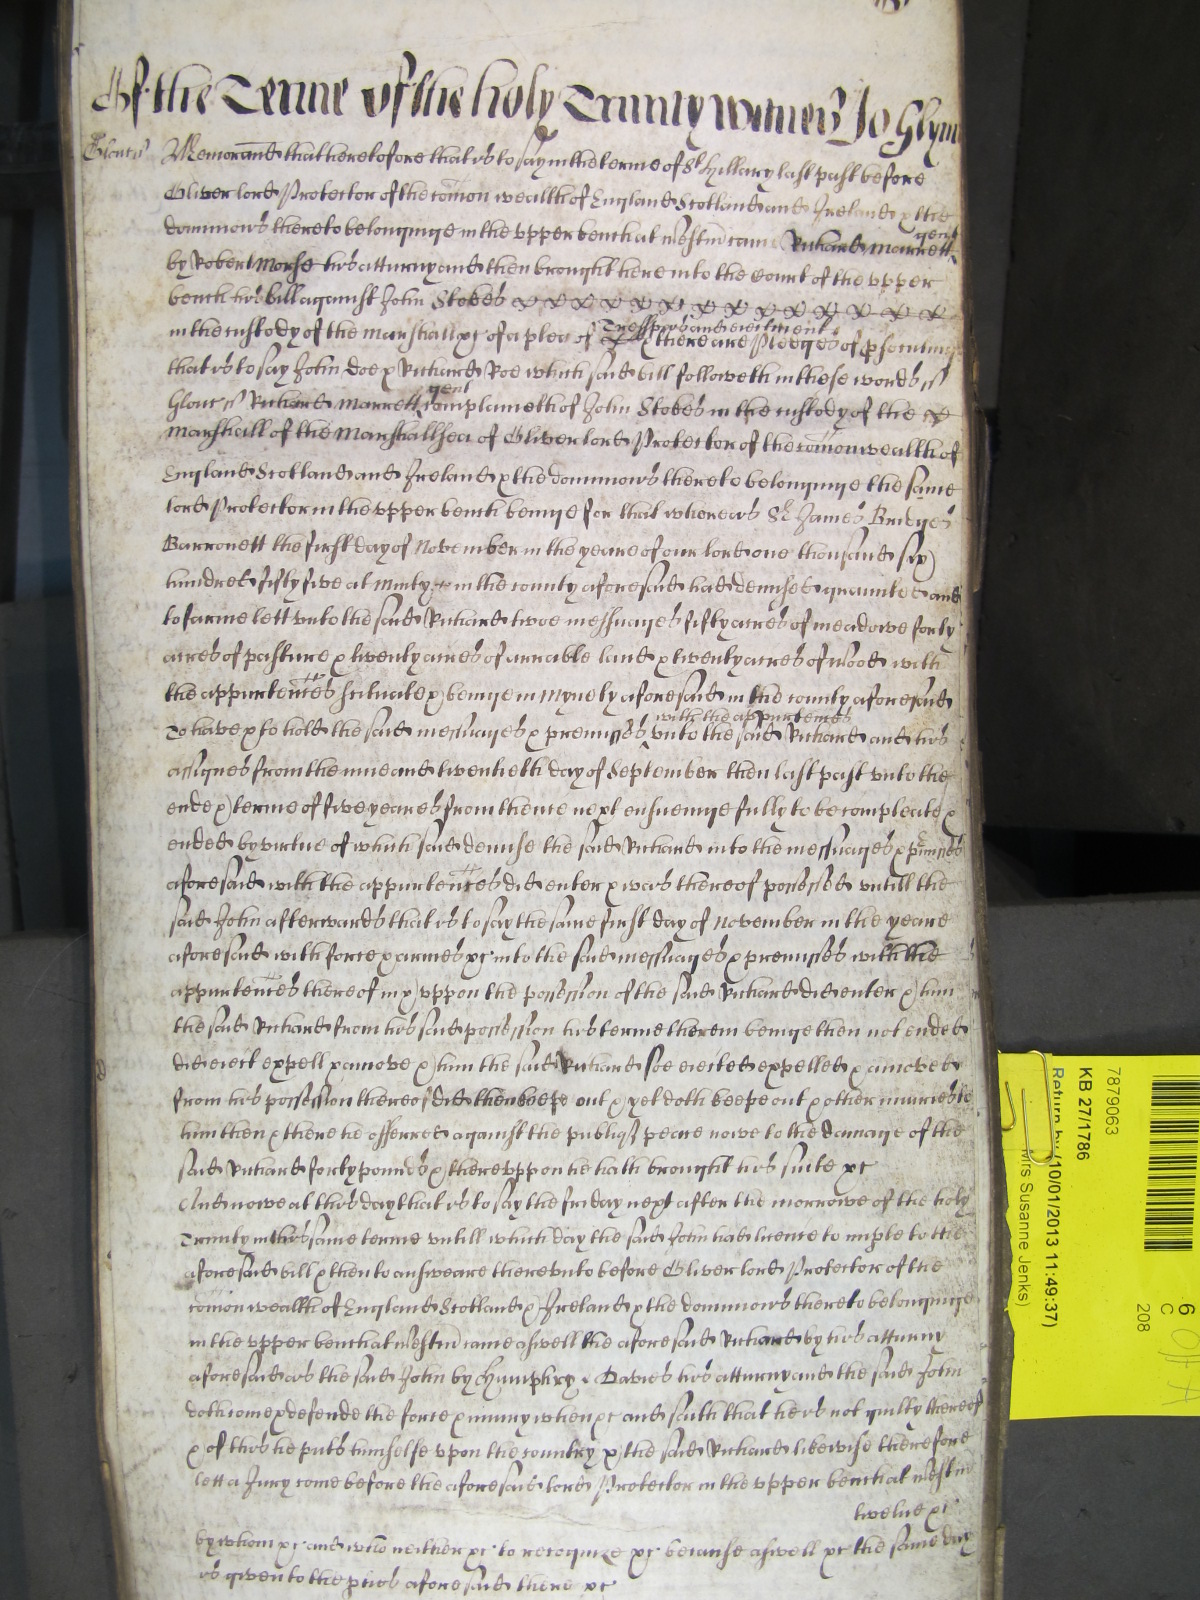 Of the Terme of the holy Trinity witnes Jo Glyn
Glouc ss Memorand that heretofore that is to say in the terme of St Hillary last past before
Oliver lord Protector of the comon wealth of England Scotland and Ireland & the
dominions thereto belonginge in the upper bench at Westm came Richard Marrett gent
by Robert Morse his atturny and then brought here into the Court of the upper
bench his bill against John Stokes
in the custody of the Marshall &c of a plea of Trespas and eiectment & there are Pledges of prosecuting
that is to say John Doe & Richard Roe which said bill followeth in these words ss
Glouc ss Richard Marrett gent complaineth of John Stokes in the custody of the
Marshall of the Marshallsea of Oliver lord Protector of the comonwealth of
England Scotland and Ireland & the dominions thereto belonginge the same
lord Protector in the upper bench beinge for that whereas Sr James Bridges
Barronett the first day of November in the yeare of our lord one thousand six
hundred fifty five at Minty in the county aforesaid had demised graunted and
to farme lett unto the said Richard twoe messuages fifty acres of meadowe forty
acres of pasture & twenty acres of arrable land & twenty acres of wood with
the appurtences scituate & beinge in Mynty aforesaid in the county aforesaid
To have & to hold the said messuages & premisses with the appurtences unto the said Richard and his
assignes from the nine and twentieth day of September then last past unto the
ende & terme of five yeares from thence next ensueinge fully to be compleate &
ended by virtue of which said demise the said Richard into the messuages & premisses
aforesaid with the appurtences did enter & was thereof possessed untill the
said John afterwards that is to say the same first day of November in the yeare
aforesaid with force & armes &c into the said messuages & premisses with the
appurtences thereof in & uppon the possession of the said Richard did enter & him
the said Richard from his said possession his terme therein beinge then not ended
did eiect expell & amove & him the said Richard soe eiected expelled & amoved
from his possession thereof did then keepe out & yet doth keepe out & other iniuries to
him then & there he offerred against the publiq peace nowe to the damage of the
said Richard forty pounds & thereuppon he hath brought his suite &c
And nowe at this day that is to say the friday next after the morrowe of the holy
Trinity in this same terme untill which day the said John had licence to imple to the
aforesaid bill & then to answeare thereunto before Oliver lord Protector of the
comon wealth of England Scotland & Ireland & the dominions thereto belonginge
in the upper bench at Westm came aswell the aforesaid Richard by his atturny
aforesaid as the said John by Humphry Davies his atturny and the said John
doth come & defende the force & iniury when &c and saith that he is not guilty thereof
& of this he puts himselfe upon the country & the said Richard likewise therefore
lett a Jury come before the aforesaid lord Protector in the upper bench at Westm
twelve &c
by whom &c and who neither &c to recognize &c because aswell &c the same day
is given to the pties aforesaid there &c
7879063
KB 27/1786
Return by (10/01/2013 11:49:37)
Mrs Susanne Jenks)
6
C
208